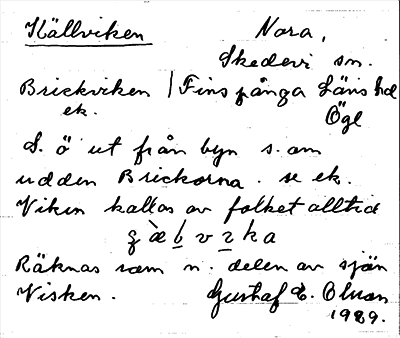 Källviken Nora,
Skedevi sn.
Brickviken / Finspånga Läns hd
ek. Ögl
S. ö ut från byn s. om
udden Brickorna. se ek.
Viken kallas av folket alltid
Räknas som n. delen av sjön
Visken. Gustaf E. Olson
1929.